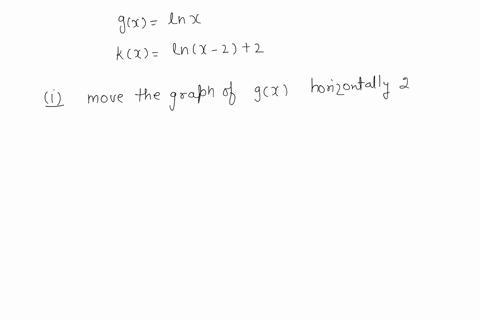 g(x) = ln x
k(x) = ln(x-2)+2
(i) move the graph of g(x) horizontally 2